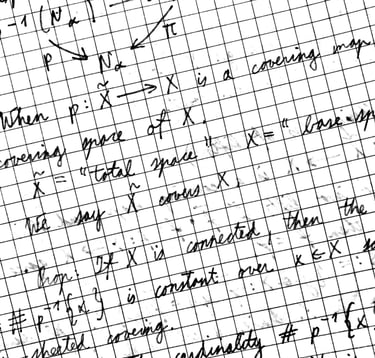 p⁻¹(Nα)
p π
Nα
When p: X̃ → X is a covering map,
covering space of X.
X̃ = "total space" X = "base sp
We say X̃ covers X.
Prop. If X is connected, then the
# p⁻¹{x} is constant over x ∈ X
sheeted covering.
cardinality # p⁻¹{x